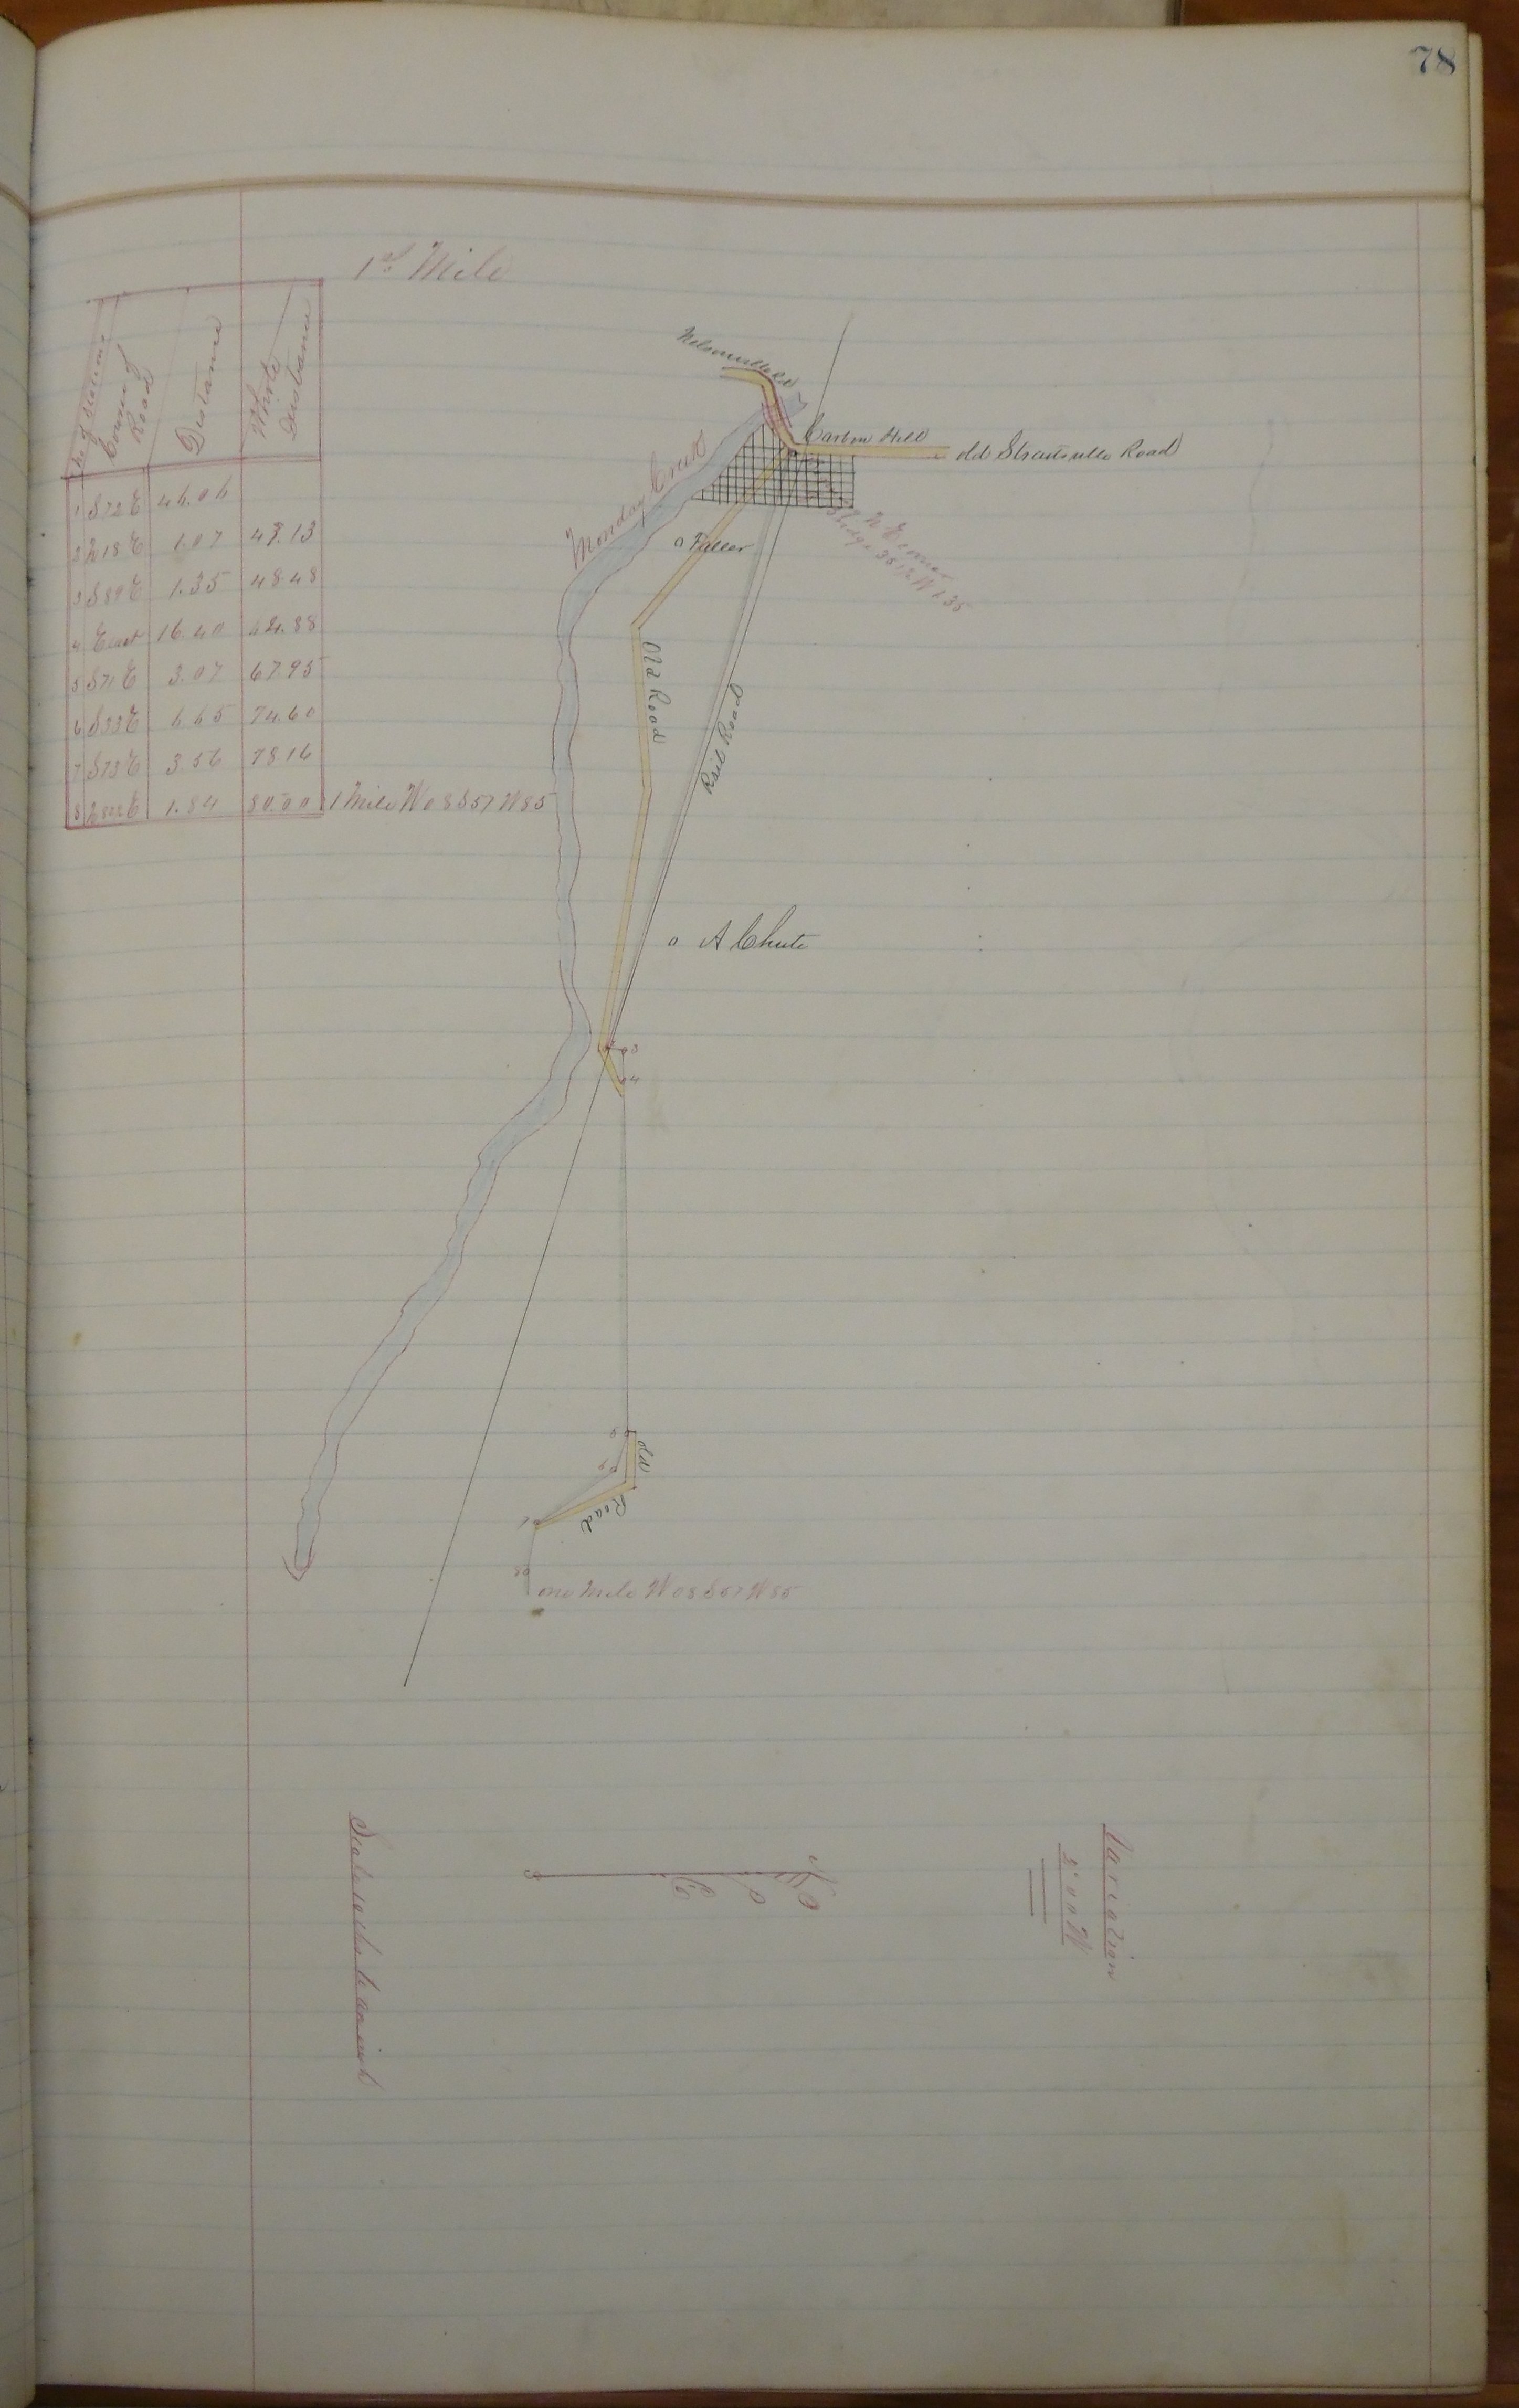 78
1st Mile
No of Stations | Course of Road | Distance | Whole Distance
1 | S72E | 46.06
2 | N18E | 1.07 | 47.13
3 | S89E | 1.35 | 48.48
4 | East | 16.40 | 64.88
5 | S71E | 3.07 | 67.95
6 | S33E | 6.65 | 74.60
7 | S73E | 3.56 | 78.16
8 | E | 1.84 | 80.00 | 1 Mile W08 S57 W85
Nelsonville Rd
Carbon Hill
old Straitsville Road
Monday Creek
N E corner
Bridge
Fuller
Old Road
Rail Road
A Chute
3
4
5
6
old
Road
7
8
one Mile W08 S57 W85
Variation
2° 00 W
S
N
Scale 10 chs to an inch